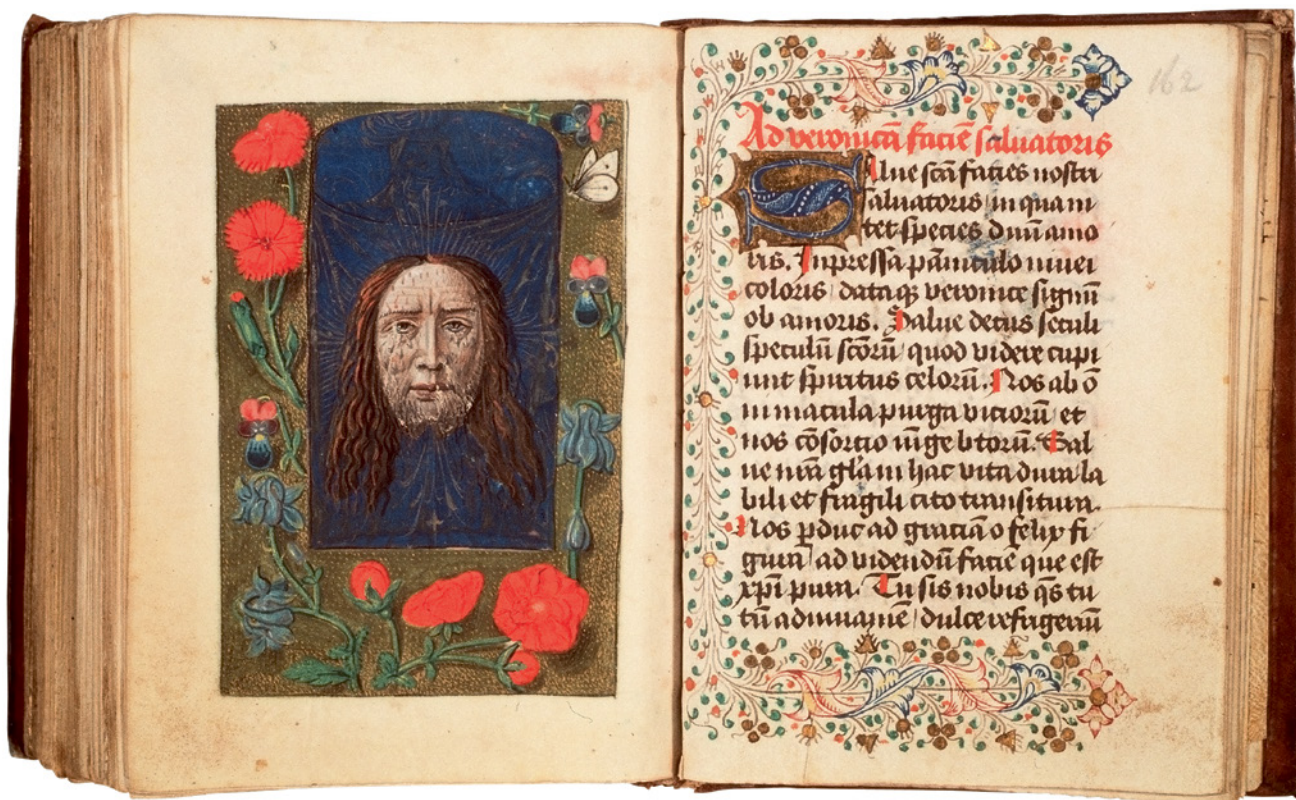 162
Ad veronicā faciē saluatoris
Salue scā facies nostri
saluatoris in qua ni
tet species diuini amo
ris. Inpressa pāniculo niuei
coloris dataq; veronice signū
ob amoris. Salue decus seculi
speculū scōrū quod videre cupi
unt spiritus celorū. Nos ab ō
ni macula purga viciorū et
nos cōsortio iūge btorū. Sal
ue nrā glā in hac vita dura la
bili et fragili cito transitura.
Nos pduc ad gratiā o felix fi
gura ad videndū faciē que est
xpi pura. Tu sis nobis qs tu
tū adiuuamē dulce refrigeriū